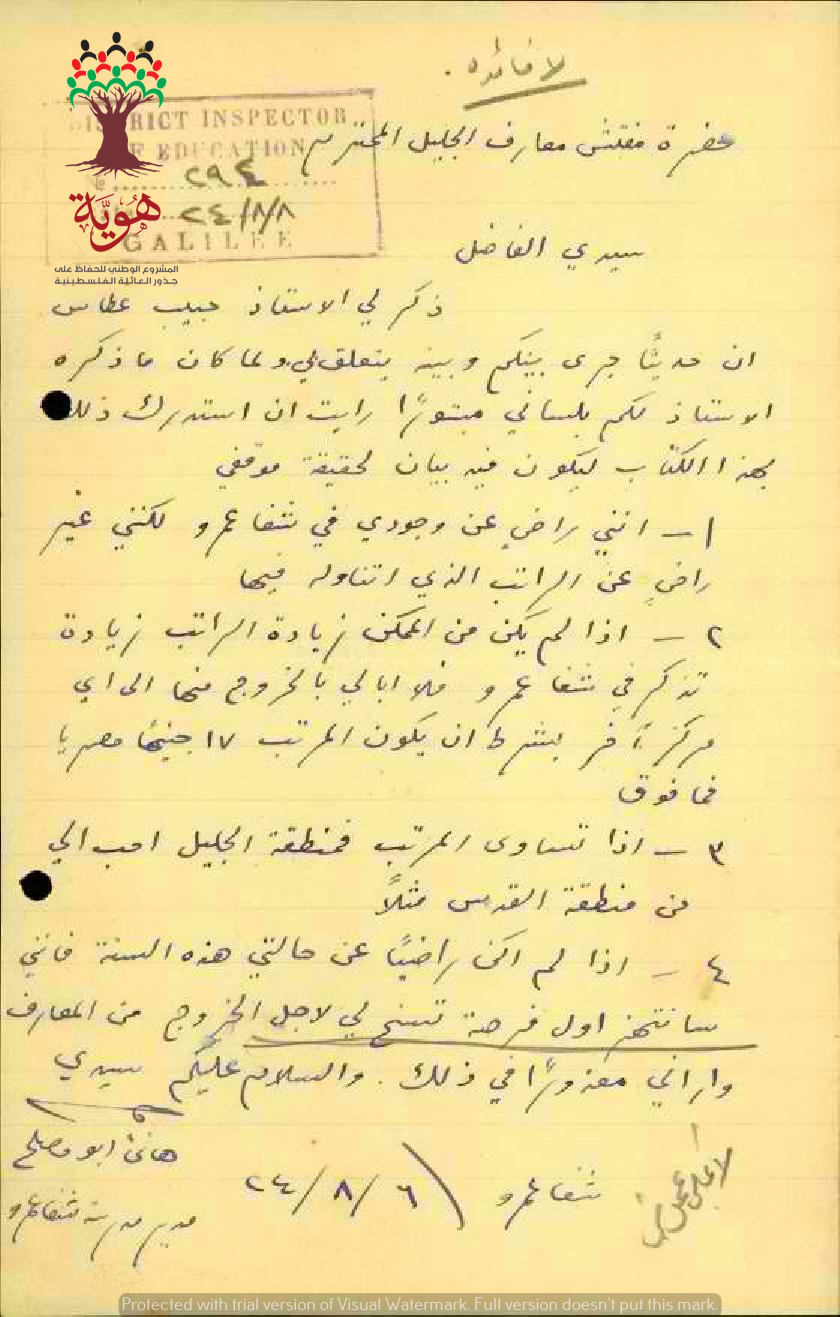 لا فائده .
DISTRICT INSPECTOR
OF EDUCATION
حضرة مفتش معارف الجليل المحترم
№ ٢٩٤
٢٤/٨/٨
GALILEE
هُويّة
المشروع الوطني للحفاظ على
جذور العائلة الفلسطينية
سيدي الفاضل
ذكر لي الاستاذ حبيب عطاس
ان حديثًا جرى بينكم وبينه يتعلق بي ولما كان ما ذكره
الاستاذ لكم بلساني مبتورًا رايت ان استدرك ذلك
بهذا الكتاب ليكون فيه بيان لحقيقة موقفي
١ – انني راضٍ عن وجودي في شفا عمرو لكنني غير
راضٍ عن الراتب الذي اتناوله فيها
٢ – اذا لم يكن من الممكن زيادة الراتب زيادة
تذكر في شفا عمرو فلا ابالي بالخروج منها الى اي
مركز آخر بشرط ان يكون المرتب ١٧ جنيهًا مصريا
فما فوق
٣ – اذا تساوى المرتب فمنطقة الجليل احب الي
من منطقة القدس مثلاً
٤ – اذا لم اكن راضيًا عن حالتي هذه السنة فانني
سانتهز اول فرصة تسنح لي لاجل الخروج من المعارف
واراني معذورًا في ذلك . والسلام عليكم سيدي
هانئ ابو مصلح
شفا عمرو ٢٤/٨/٦
مدير مدرسة شفا عمرو
Protected with trial version of Visual Watermark. Full version doesn't put this mark.